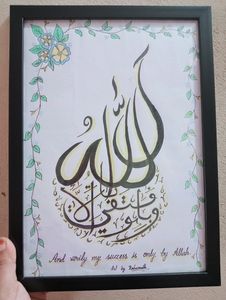 وما توفيقي إلا بالله
And verily my success is only by Allah
Art by